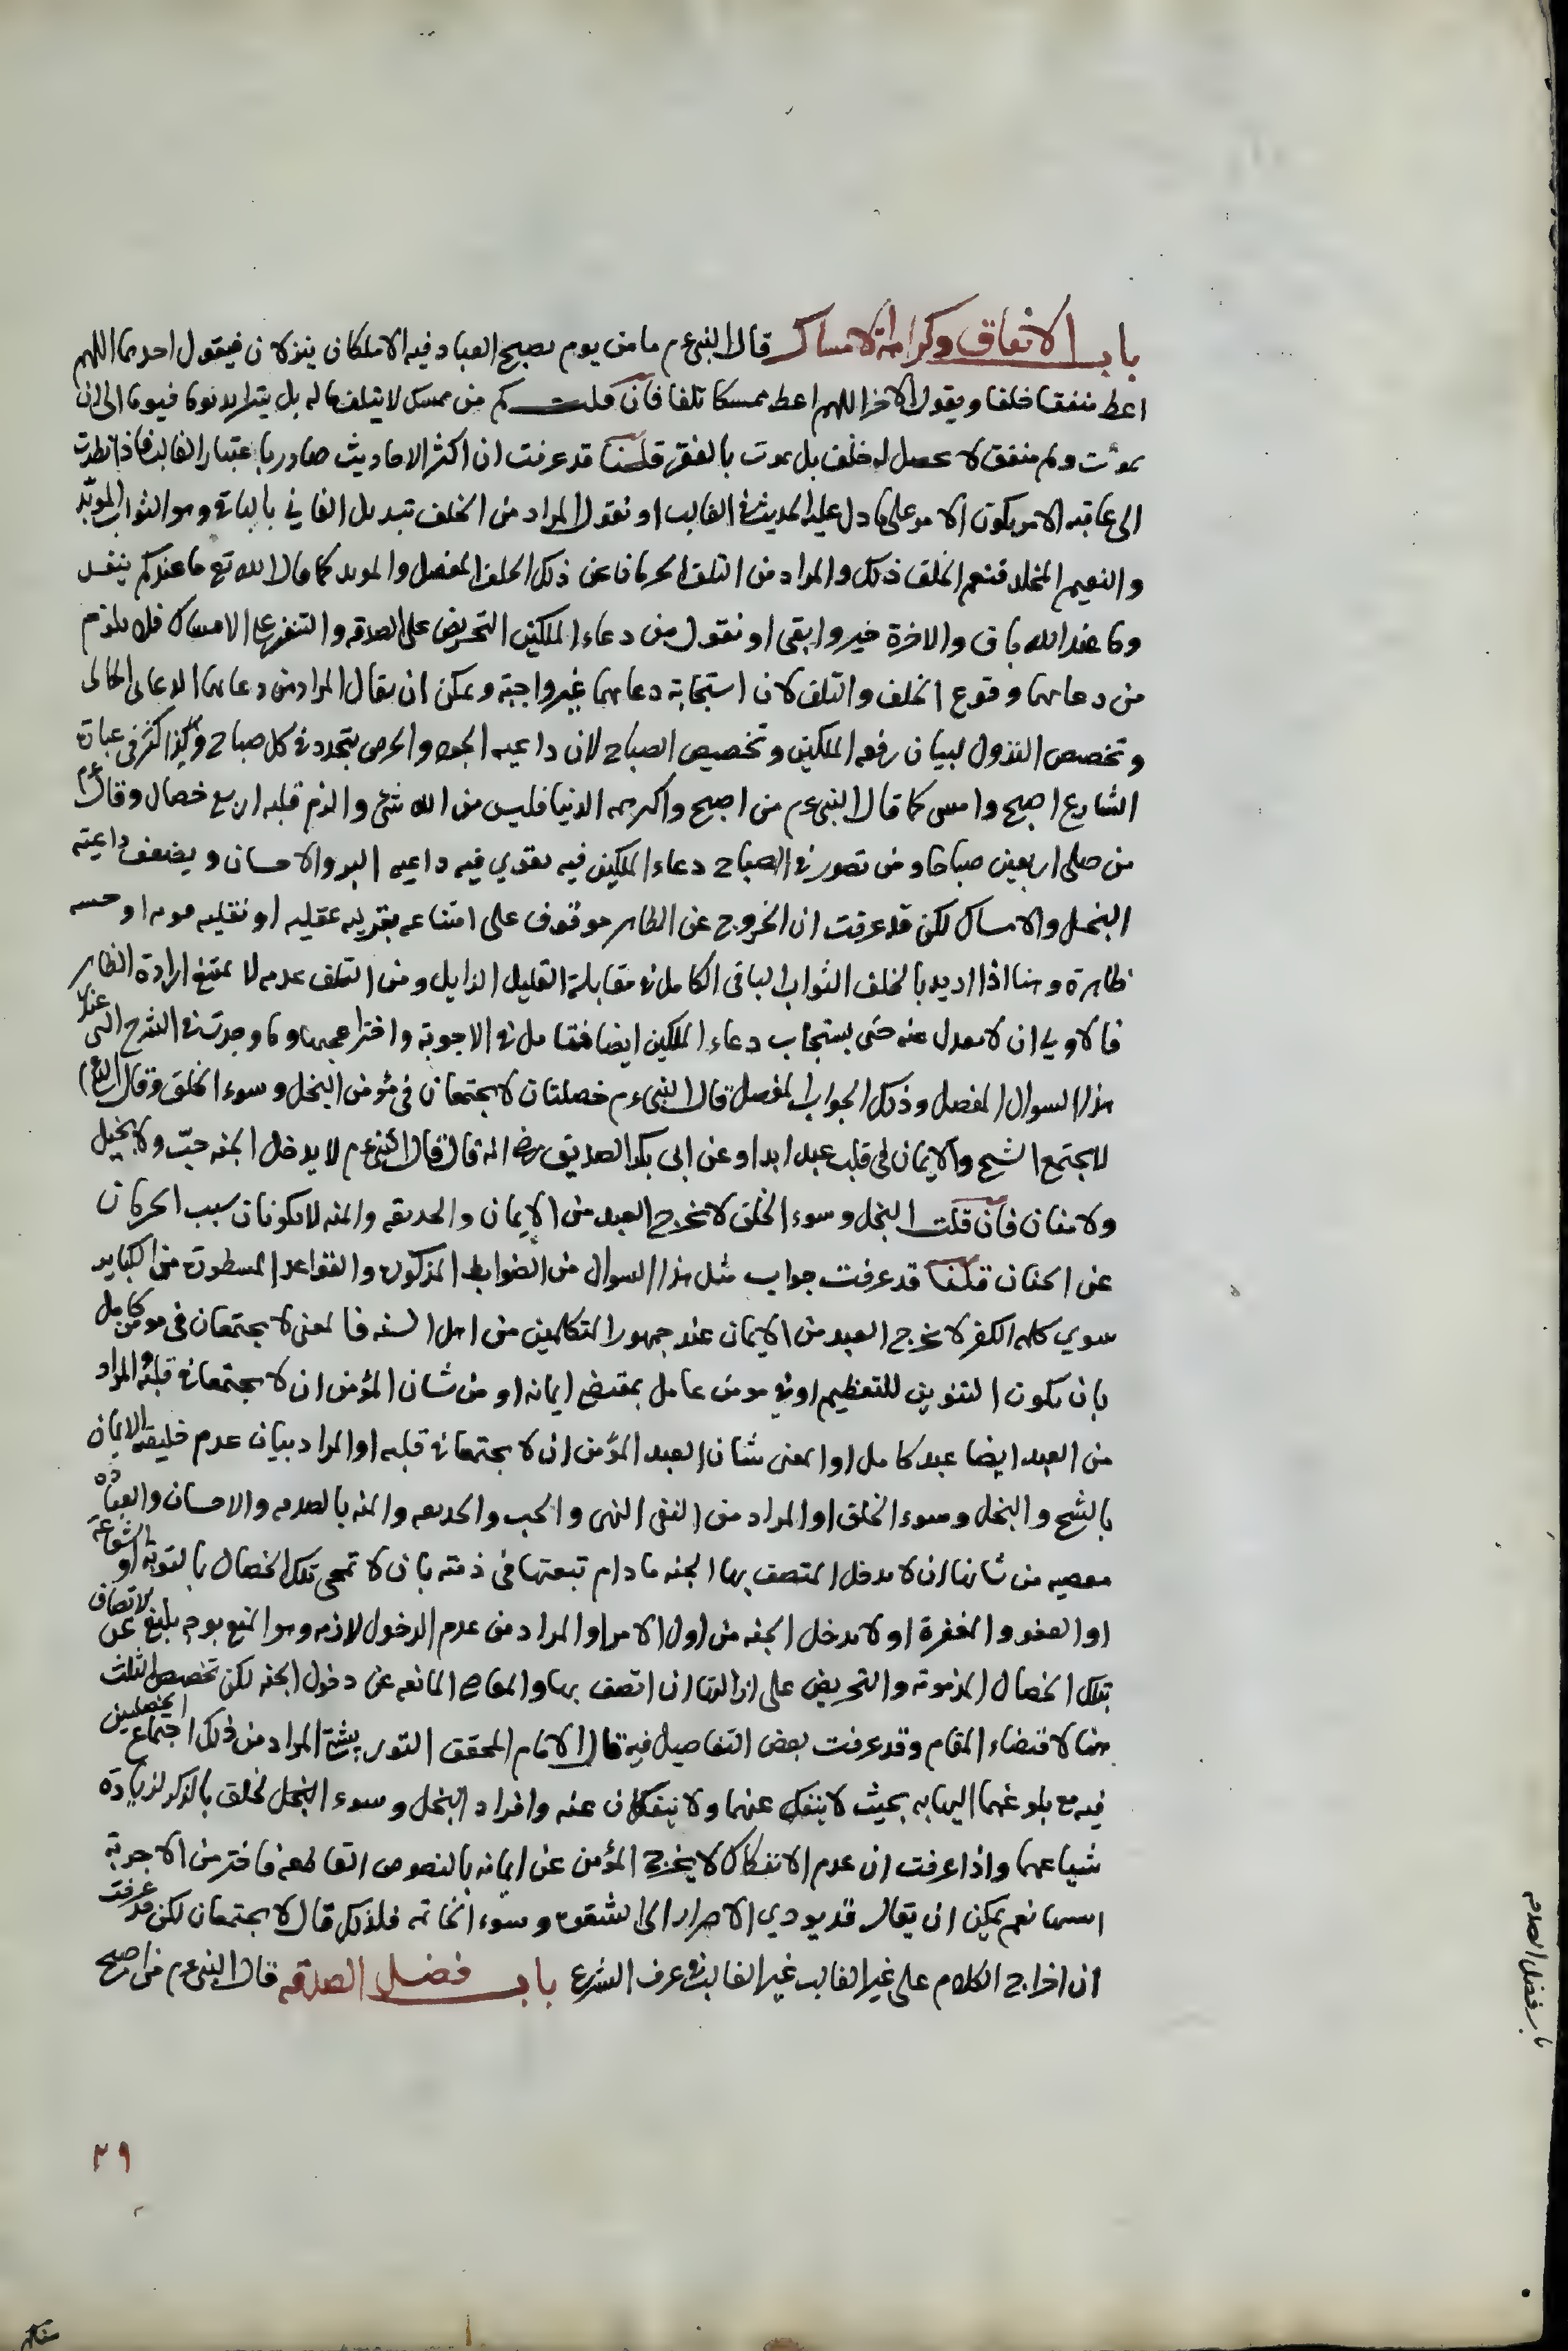 باب الانفاق وكراهة الامساك قال النبى ءم ما من يوم يصبح العباد فيه الا ملكان ينزلان فيقول احدهما اللهم
اعط منفقا خلفا ويقول الاخر اللهم اعط ممسكا تلفا فان قلت كم من ممسك لا يتلف ماله بل يتزايد يوما فيوما الى ان
يموت وكم منفق لا يحصل له خلف بل يموت بالفقر قلنا قد عرفت ان اكثر الاحاديث صادر باعتبار الغالب فاذا نظرت
الى عاقبه الامر يكون الامر على ما دل عليه الحديث فى الغالب او نقول المراد من الخلف تبديل الفانى بالباقى وهو الثواب المؤبد
والنعيم المخلد فنعم الخلف ذلك والمراد من التلف الحرمان عن ذلك الخلف المفضل والموبد كما قال الله تع ما عندكم ينفد
وما عند الله باق والاخرة خير وابقى او نقول من دعاء الملكين التحريض على الصدقه والتنفير على الامساك فلا يلزم
من دعائهما وقوع الخلف والتلف لان استجابة دعائهما غير واجبة ويمكن ان يقال المراد من دعائهما الدعاء الحالى
وتخصيص النزول لبيان رفعه الملكين وتخصيص الصباح لان داعيه الجود والحرص يتجدد فى كل صباح وكذا كثر فى عبارة
الشارع اصبح وامسى كما قال النبى ءم من اصبح واكبر همه الدنيا فليس من الله فى شئ والزم قلبه اربع خصال وقال ءم
من صلى اربعين صباحا ومن تصور فى الصباح دعاء الملكين فيه يقوي فيه داعيه البر والاحسان ويضعف داعية
البخل والامساك لكن قد عرفت ان الخروج عن الظاهر موقوف على امتناعه بقرينه عقليه او نقليه او حسيه
ظاهرة وهنا اذا اريد بالخلف الثواب الباقى الكامل فى مقابلة القليل الزايل ومن التلف عدمه لا يمتنع ارادة الظاهر
فالاولى ان لا يعدل عنه حتى يستجاب دعاء الملكين ايضا فتامل فى الاجوبة واختر اعجبها وما وجدت فى الشرح التى عندنا
هذا السوال المفصل وذلك الجواب المفصل قال النبى ءم خصلتان لا يجتمعان فى مؤمن البخل وسوء الخلق وقال
لا يجتمع الشح والايمان فى قلب عبد ابدا وعن ابى بكر الصديق رضه انه قال قال النبى ءم لا يدخل الجنه خبّ ولا بخيل
ولا منان فان قلت البخل وسوء الخلق لا يخرج العبد من الايمان والخديعه والمنه لا يكونان سبب الحرمان
عن الجنان قلنا قد عرفت جواب مثل هذا السوال من الضوابط المذكوره والقواعد المسطورة من الكباير
سوي كلمه الكفر لا يخرج العبد من الايمان عند جمهور المتكلمين من اهل السنه فالمعنى لا يجتمعان فى مومن كامل
بان يكون التنوين للتعظيم او فى مومن عامل بمقتضى ايمانه او من شان المؤمن ان لا يجتمعا فى قلبه والمراد
من العبد ايضا عبد كامل او المعنى شان العبد المؤمن ان لا يجتمعا فى قلبه او المراد بيان عدم خليقه الايمان
بالشح والبخل وسوء الخلق او المراد من النفى النهى والخب والخديعه والمنه بالصدقه والاحسان والعباده
معصيه من شانها ان لا يدخل المتصف بها الجنه ما دام تبعتها فى ذمته بان لا تمحى تلك الخصال بالتوبة او الشفاعة
او العفو والمغفرة او لا يدخل الجنه من اول الامر او المراد من عدم الدخول لازمه وهو المنع بوجه بليغ عن الاتصاف
بتلك الخصال المذمومة والتحريض على ازالتها ان اتصف بها والمعاصى المانعه عن دخول الجنه لكن تخصيص الثلث
هنا لاقتضاء المقام وقد عرفت بعض التفاصيل فيه قال الامام المحقق التوربشتى المراد من ذلك اجتماع الخصلتين
فيه مع بلوغهما النهايه بحيث لا ينفك عنهما ولا ينفكان عنه وافراد البخل وسوء الخلق بالذكر لزيادة
شياعهما واذا عرفت ان عدم الانفكاك لا يخرج المؤمن عن ايمانه بالنصوص القاطعه فاختر من الاجوبة
اسهما نعم يمكن ان يقال قد يودي الاصرار الى الشقوه وسوء الخاتمه فلذلك قال لا يجتمعان لكن قد عرفت
ان اخراج الكلام على غير الغالب غير الغالب فى عرف الشرع باب فضل الصدقه قال النبى ءم من اصبح
باب فضل الصدقه
٢٩